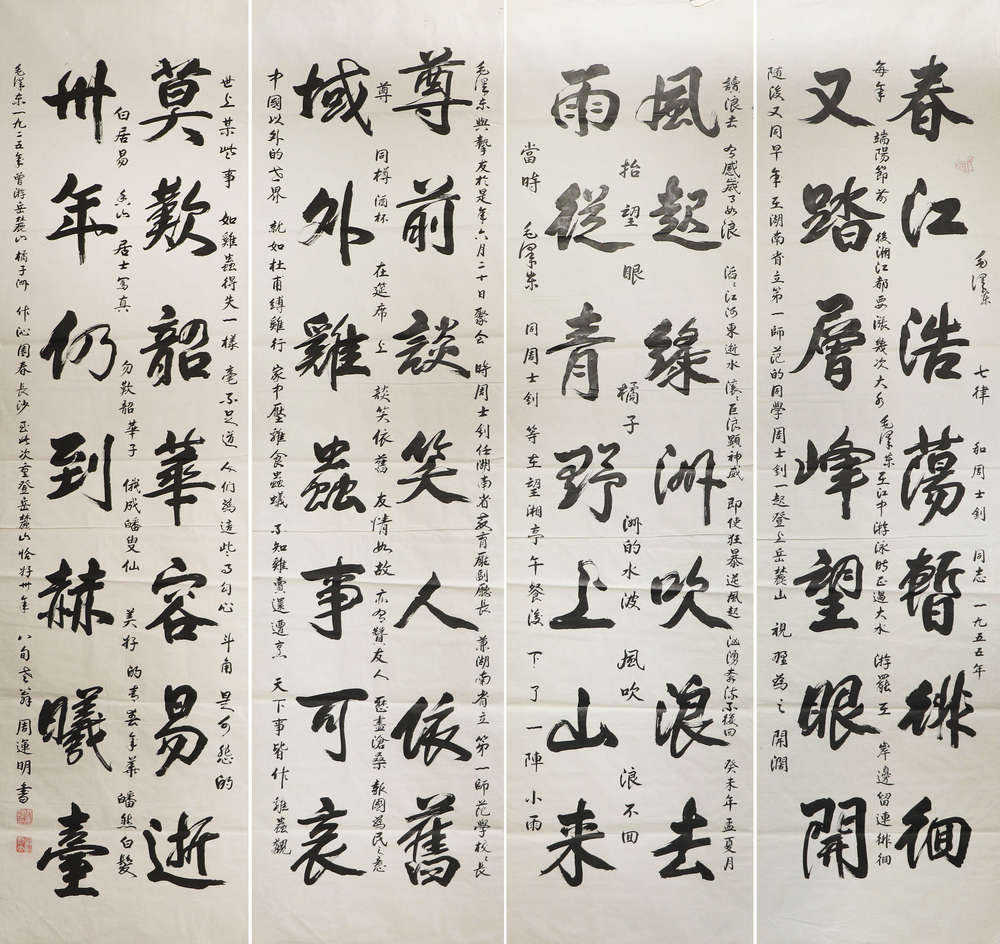 毛澤东 七律 和周士釗 同志 一九五五年
春江浩蕩暫徘徊
每年 端陽節前 後湘江都要漲幾次大水 毛澤东在江中游泳時正遇大水 游罷在 岸邊留連徘徊
又踏層峰望眼開
随後又同早年在湖南省立第一師范的同學周士釗一起登上岳麓山 視野為之開闊
讀浪去 有感歲了如浪 滔滔江河東逝水 滾滾巨浪顯神威 即使狂暴逆風起 汹湧奔流不後回 癸未年 孟夏月
風起綠洲吹浪去
抬望眼 橘子 洲的水波 風吹 浪不回
雨從青野上山来
當時 毛澤东 同周士釗 等在望湘亭午餐後 下了一陣小雨
毛澤东與摯友於是年六月二十日聚会 時周士釗任湖南省教育廳副廳長 兼湖南省立 第一師范學校校長
尊前談笑人依舊
尊 同樽 酒杯 在筵席上 談笑依舊 友情如故 亦有贊友人 歷盡滄桑 報國為民之意
域外雞蟲事可哀
中國以外的世界 就如杜甫縛雞行 家中厭雞食蟲蟻 不知雞賣還遭烹 天下事皆作雞蟲觀
世上某些事 如雞蟲得失一樣 毫不足道 人們為這些事勾心 斗角 是可怨的
莫歎韶華容易逝
白居易 香山 居士寫真 勿歎韶華子 俄成皤叟仙 美好的青春年華 皤然白髮
卅年仍到赫曦臺
毛澤东一九二五年曾游岳麓山橘子洲 作沁園春長沙 至此次重登岳麓山恰好卅年 八旬老翁 周運明書